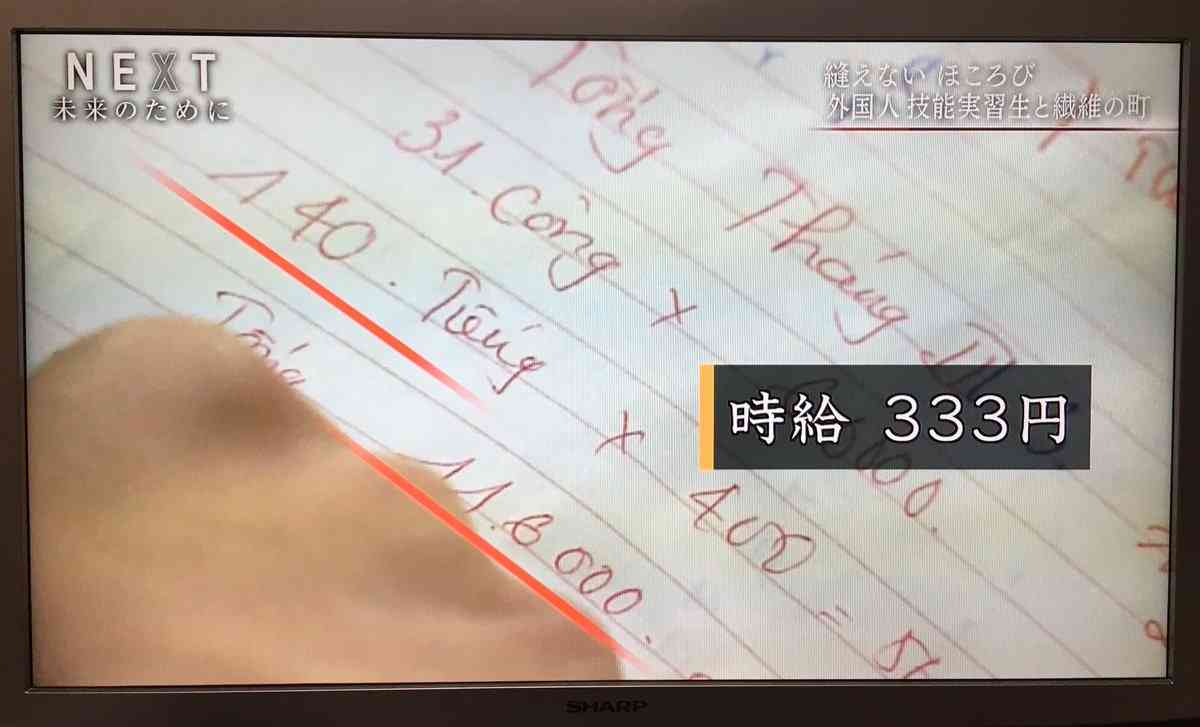 NEXT
未来のために
縫えない ほころび
外国人 技能実習生と繊維の町
Tổng Tháng
31. Công x
140. Tiếng x 400 =
Tổng 116000.
時給 333円
SHARP